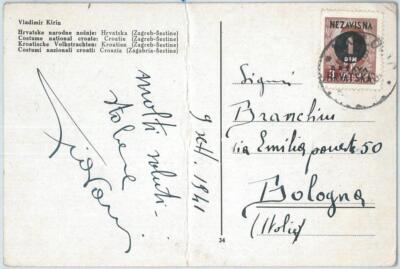 Vladimir Kirin
Hrvatske narodne nošnje: Hrvatska (Zagreb-Šestine)
Costume national croate: Croatie (Zagreb-Šestine)
Kroatische Volkstrachten: Kroatien (Zagreb-Šestine)
Costumi nazionali croati: Croazia (Zagabria-Šestine)
molti saluti
9 XII. 1941
34
NEZAVISNA
1
DIN
DRŽAVA
HRVATSKA
Sigri
Branchini
via Emilia ponente 50
Bologna
(Italia)